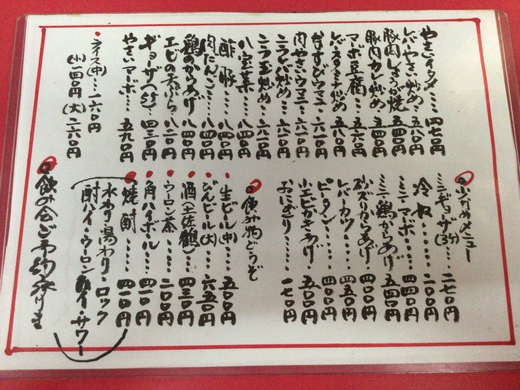 やさいイタメ・・四七〇円
レバーやさい炒め・五八〇円
豚肉しょうが焼・五四〇円
豚肉カレー炒め・
マーボ豆腐・・
レバニラ炒め
肉やさいウマニ・
ニラレバ炒め・・六一〇円
ニラ玉炒め・・六一〇円
八宝菜・・・八四〇円
酢豚・・・八四〇円
肉だんご・・・八四〇円
鶏のからあげ・八四〇円
エビの天ぷら・八二〇円
ギョーザ(六ケ)・・四三〇円
やさいマーボ・・五九〇円
ライス(中)・・・一六〇円
(小)一四〇円(大)二六〇円
小さなメニュー
ミニギョーザ(3ケ)・・二七〇円
冷奴・・・・・二一〇円
ミニマーボ・・・・四四〇円
ミニ鶏からあげ・・四四〇円
砂ズリからあげ・四〇〇円
レバーカツ・・・・四五〇円
ピータン・・・・四〇〇円
小エビからあげ・四〇〇円
おにぎり・・・・・一七〇円
飲み物どうぞ
生ビール(中)・・・五〇〇円
びんビール(大)・・六五〇円
酒(土佐鶴)・・・四三〇円
ウーロン茶・・・・二〇〇円
角ハイボール・・・四〇〇円
焼酎・・・・・四一〇円
水わり・湯わり・ロック
酎ハイ・ウーロンハイ・サワー
飲み会ご予約承ります